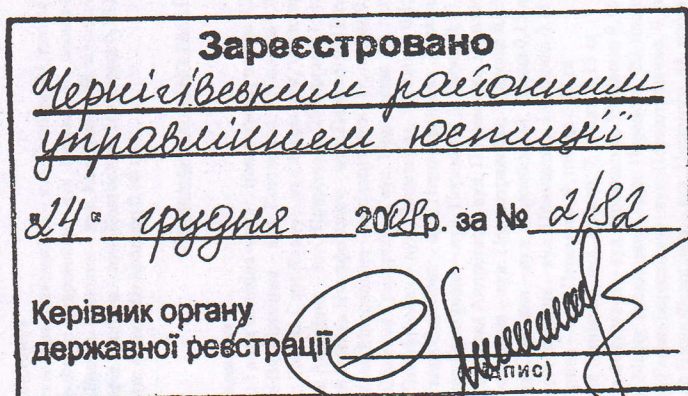 Зареєстровано
Чернігівським районним
управлінням юстиції
"24" грудня 2009р. за № 2/82
Керівник органу
державної реєстрації
(підпис)